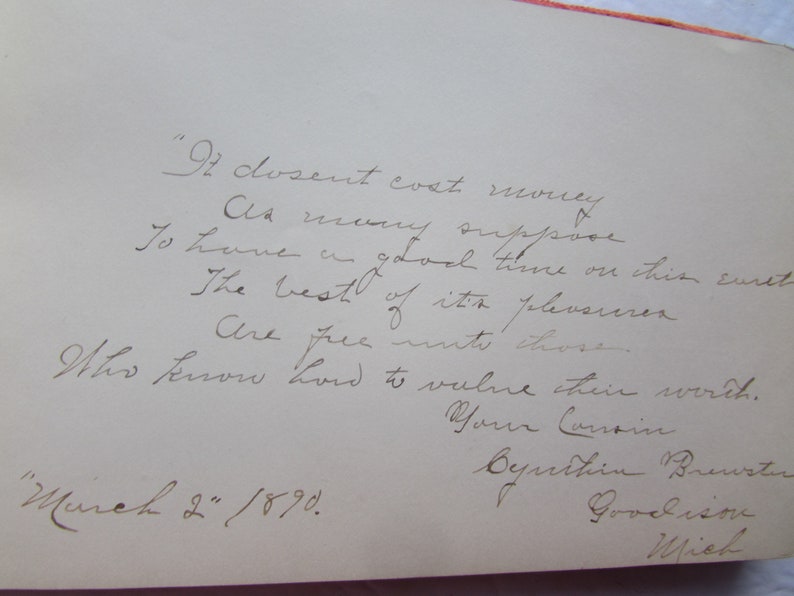 "It dosent cost money
As many suppose
To have a good time on this earth
The best of it's pleasures
Are free unto those
Who know how to value their worth.
Your Cousin
Cynthia Brewster
Goodison
Mich
"March 2" 1890.